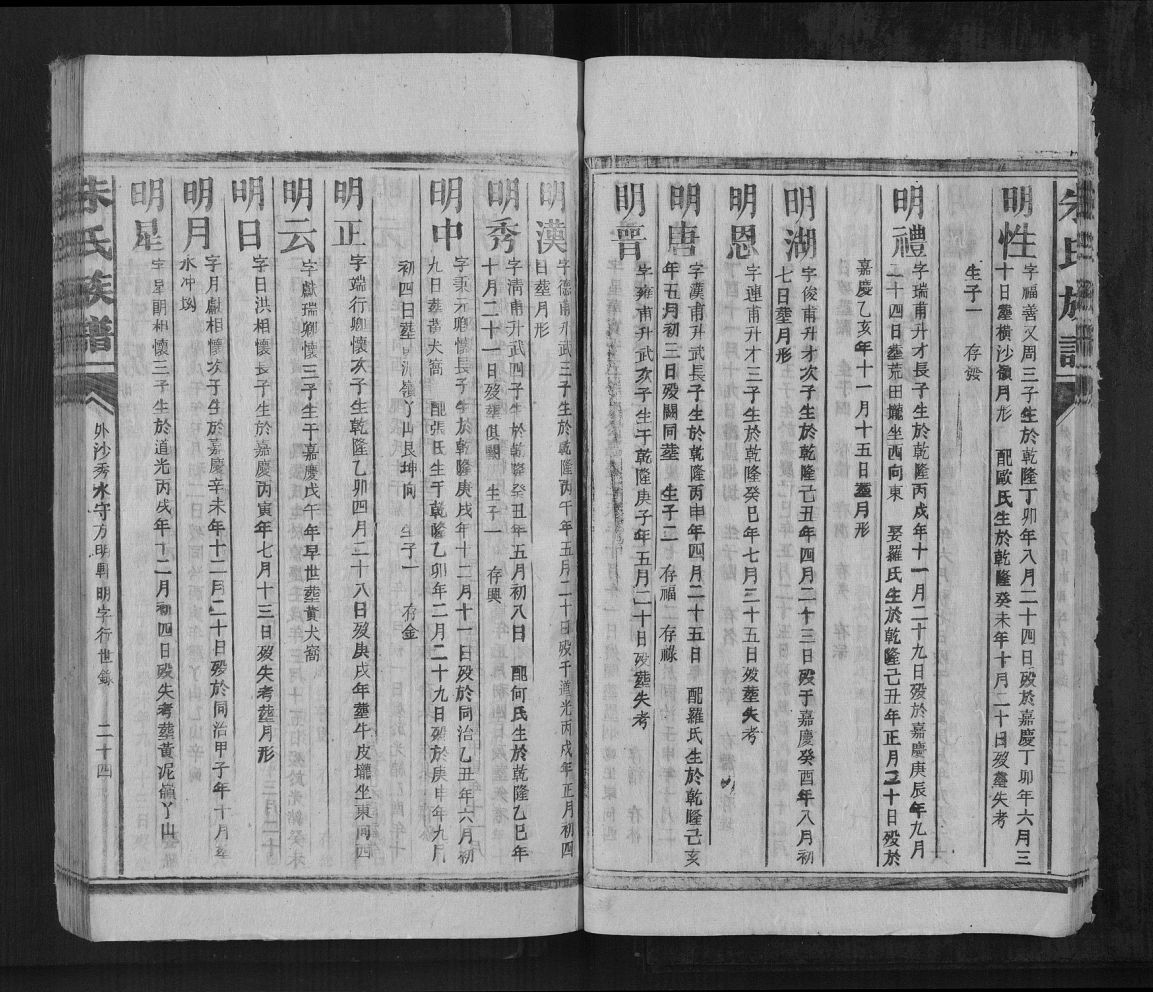 朱氏族譜
明性
字福善又周三子生於乾隆丁卯年八月二十四日歿於嘉慶丁卯年六月三
十日塟橫沙嶺月形 配歐氏生於乾隆癸未年十月二十日歿塟失考
生子一 存發
明禮
字瑞甫升才長子生於乾隆丙戌年十一月二十九日歿於嘉慶庚辰年九月
二十四日塟荒田壠坐西向東 娶羅氏生於乾隆己丑年正月二十日歿於
嘉慶乙亥年十一月十五日塟月形
明湖
字俊甫升才次子生於乾隆己丑年四月二十三日歿于嘉慶癸酉年八月初
七日塟月形
明恩
字連甫升才三子生於乾隆癸巳年七月三十五日歿塟失考
明唐
字漢甫升武長子生於乾隆丙申年四月二十五日 配羅氏生於乾隆己亥
年五月初三日歿闕同塟 生子二 存福 存祿
明晋
字雍甫升武次子生于乾隆庚子年五月二十日歿塟失考
明漢
字德甫升武三子生於乾隆丙午年五月二十日歿于道光丙戌年正月初四
日塟月形
明秀
字清甫升武四子生於乾隆癸丑年五月初八日 配何氏生於乾隆乙巳年
十月二十一日歿塟俱闕 生子一 存興
明中
字秉元卿懷長子生於乾隆庚戌年十二月十一日歿於同治乙丑年六月初
九日塟黃犬窩 配張氏生于乾隆乙卯年二月二十九日歿於庚申年九月
初四日塟 嶺丫山艮坤向 生子一 存金
明正
字端行卿懷次子生乾隆乙卯四月二十八日歿庚戌年塟牛皮壠坐東向西
明云
字獻瑞卿懷三子生于嘉慶戊午年早世塟黃犬窩
明日
字日洪相懷長子生於嘉慶丙寅年七月十三日歿失考塟月形
明月
字月獻相懷次子生於嘉慶辛未年十二月二十日歿於同治甲子年十月塟
水冲坳
明星
字星朗相懷三子生於道光丙戌年十二月初四日歿失考塟黃泥嶺丫山
朱氏族譜 外沙秀水守方明興明字行世錄 二十四